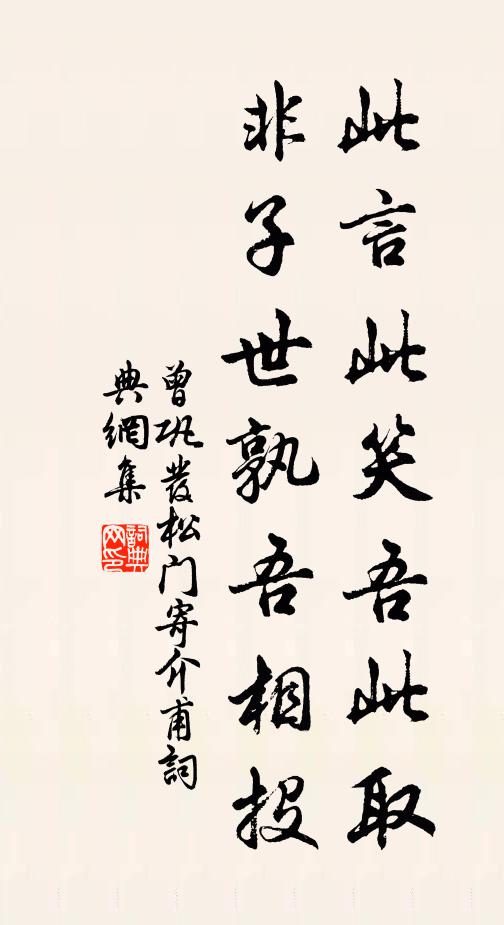 此言此笑吾此取
非子世孰吾相投
曾巩發松门寄介甫詞
典網集
詞典网印